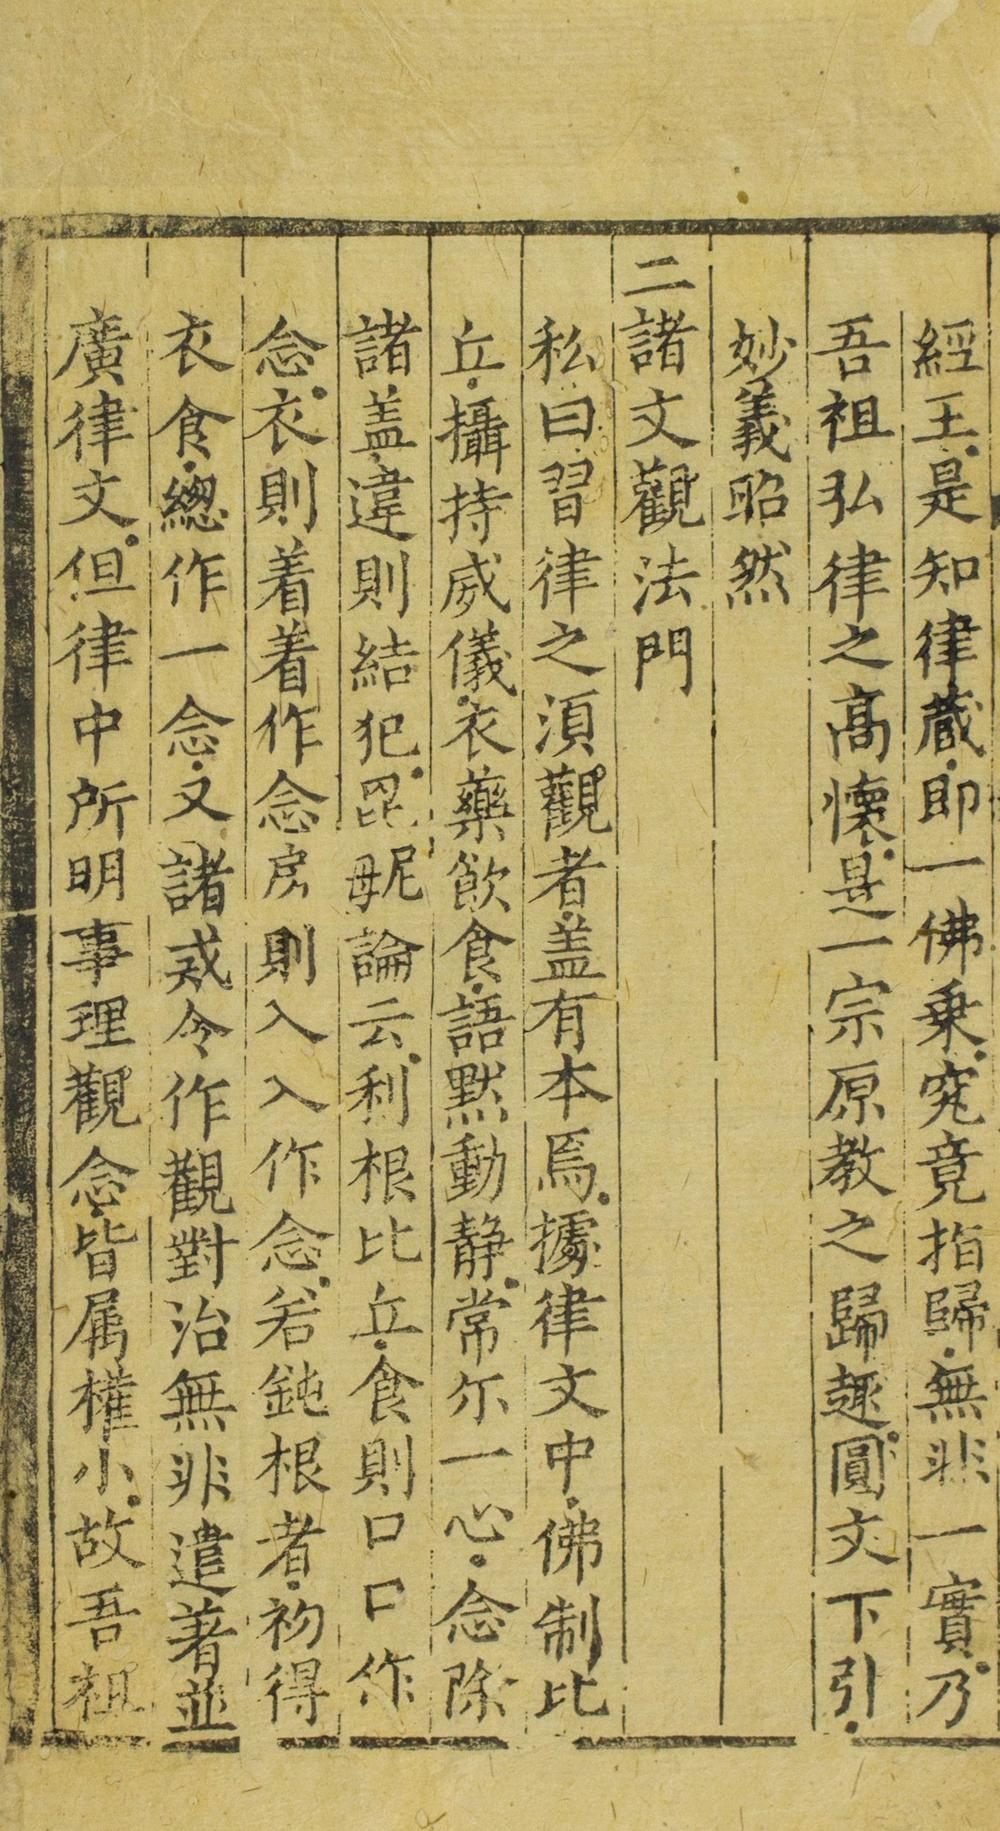 經王是知律蔵即一佛乗究竟指歸無非一實乃
吾祖弘律之高懷是一宗原教之歸趣圓文下引
妙義昭然
二諸文觀法門
私曰習律之湏觀者盖有本焉據律文中佛制比
丘攝持威儀衣藥飲食語黙動静常尓一心念除
諸盖違則結犯毘𡜀論云利根比丘食則口口作
念衣則着着作念房則入入作念若鈍根者初得
衣食總作一念又諸戒令作觀對治無非遣著並
廣律文但律中所明事理觀念皆属權小故吾祖